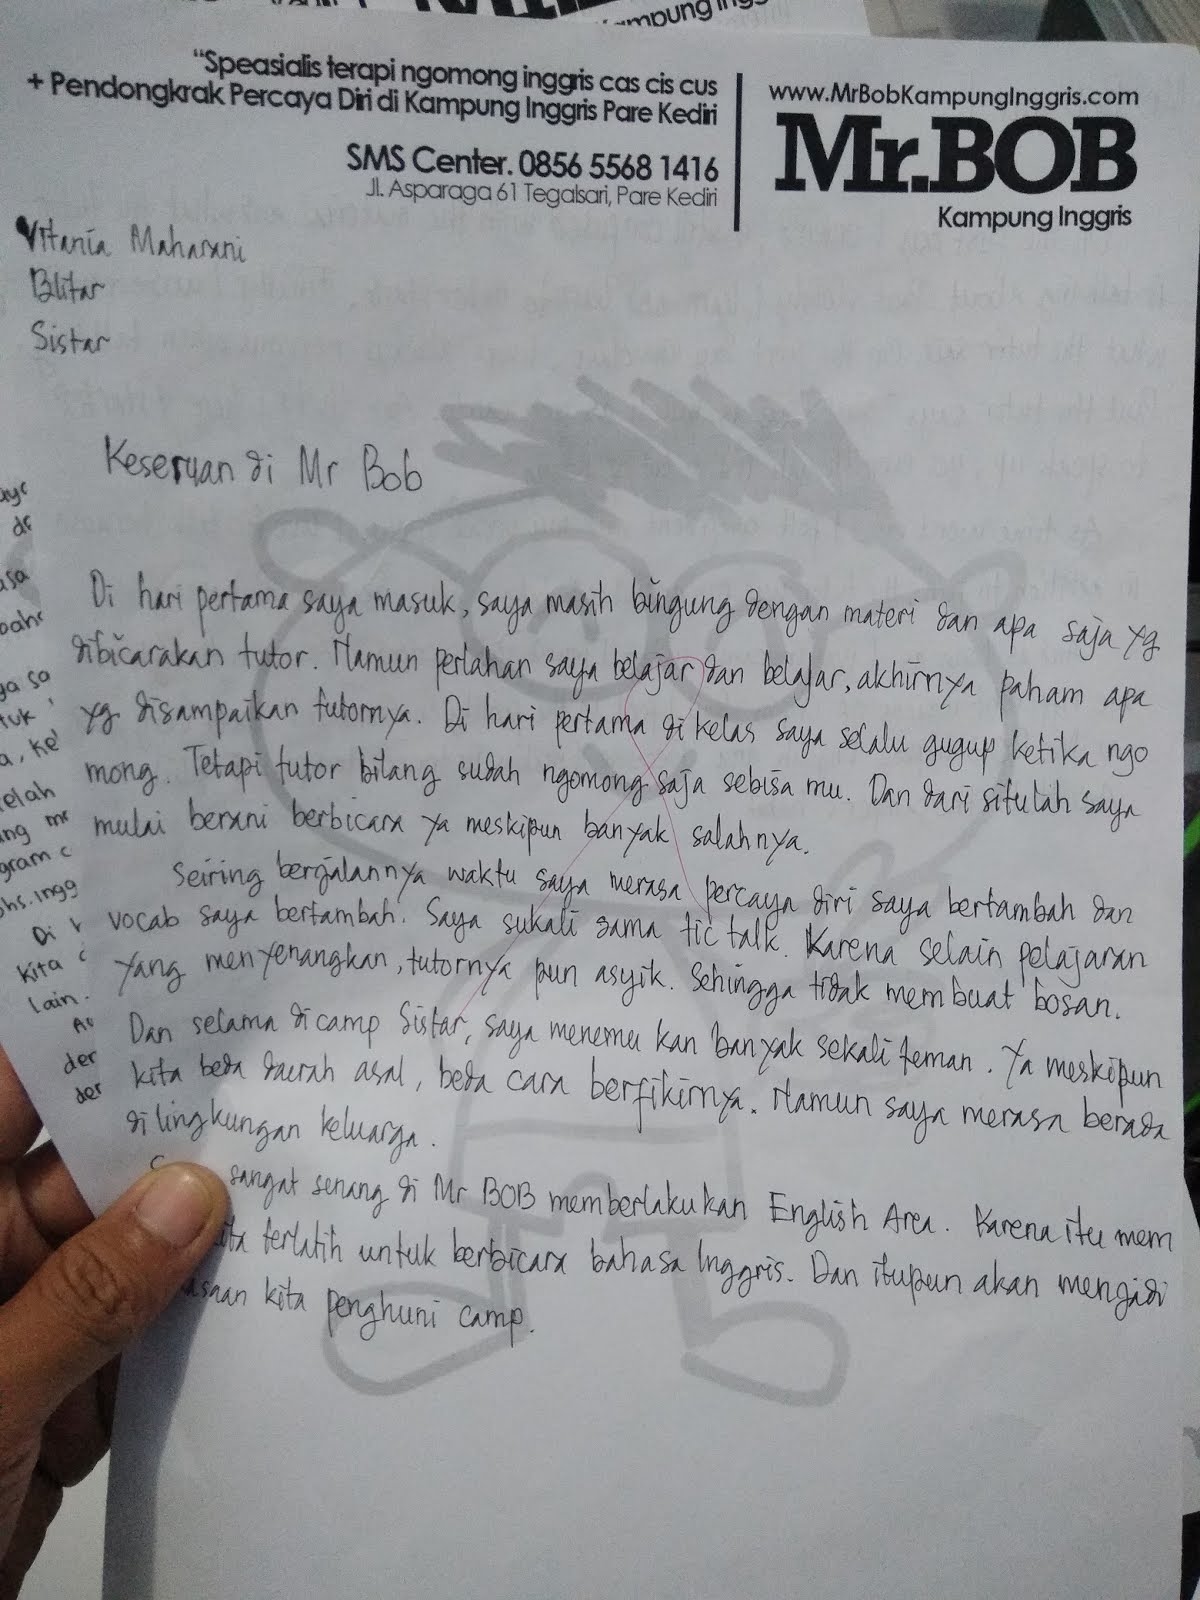 Kampung Ingg
"Speasialis terapi ngomong inggris cas cis cus
+ Pendongkrak Percaya Diri di Kampung Inggris Pare Kediri
SMS Center. 0856 5568 1416
Jl. Asparaga 61 Tegalsari, Pare Kediri
www.MrBobKampungInggris.com
Mr.BOB
Kampung Inggris
Vitania Maharani
Blitar
Sistar
Keseruan di Mr Bob
Di hari pertama saya masuk, saya masih bingung dengan materi dan apa saja yg
dibicarakan tutor. Namun perlahan saya belajar dan belajar, akhirnya paham apa
yg disampaikan tutornya. Di hari pertama di kelas saya selalu gugup ketika ngo
mong. Tetapi tutor bilang sudah ngomong saja sebisa mu. Dan dari situlah saya
mulai berani berbicara ya meskipun banyak salahnya.
Seiring berjalannya waktu saya merasa percaya diri saya bertambah dan
vocab saya bertambah. Saya sukali sama tic talk. Karena selain pelajaran
yang menyenangkan, tutornya pun asyik. Sehingga tidak membuat bosan.
Dan selama di camp Sistar, saya menemu kan banyak sekali teman. Ya meskipun
kita beda daerah asal, beda cara berfikirnya. Namun saya merasa berada
di lingkungan keluarga.
sangat senang di Mr BOB memberlakukan English Area. Karena itu mem
terlatih untuk berbicara bahasa Inggris. Dan itupun akan menjadi
kita penghuni camp.